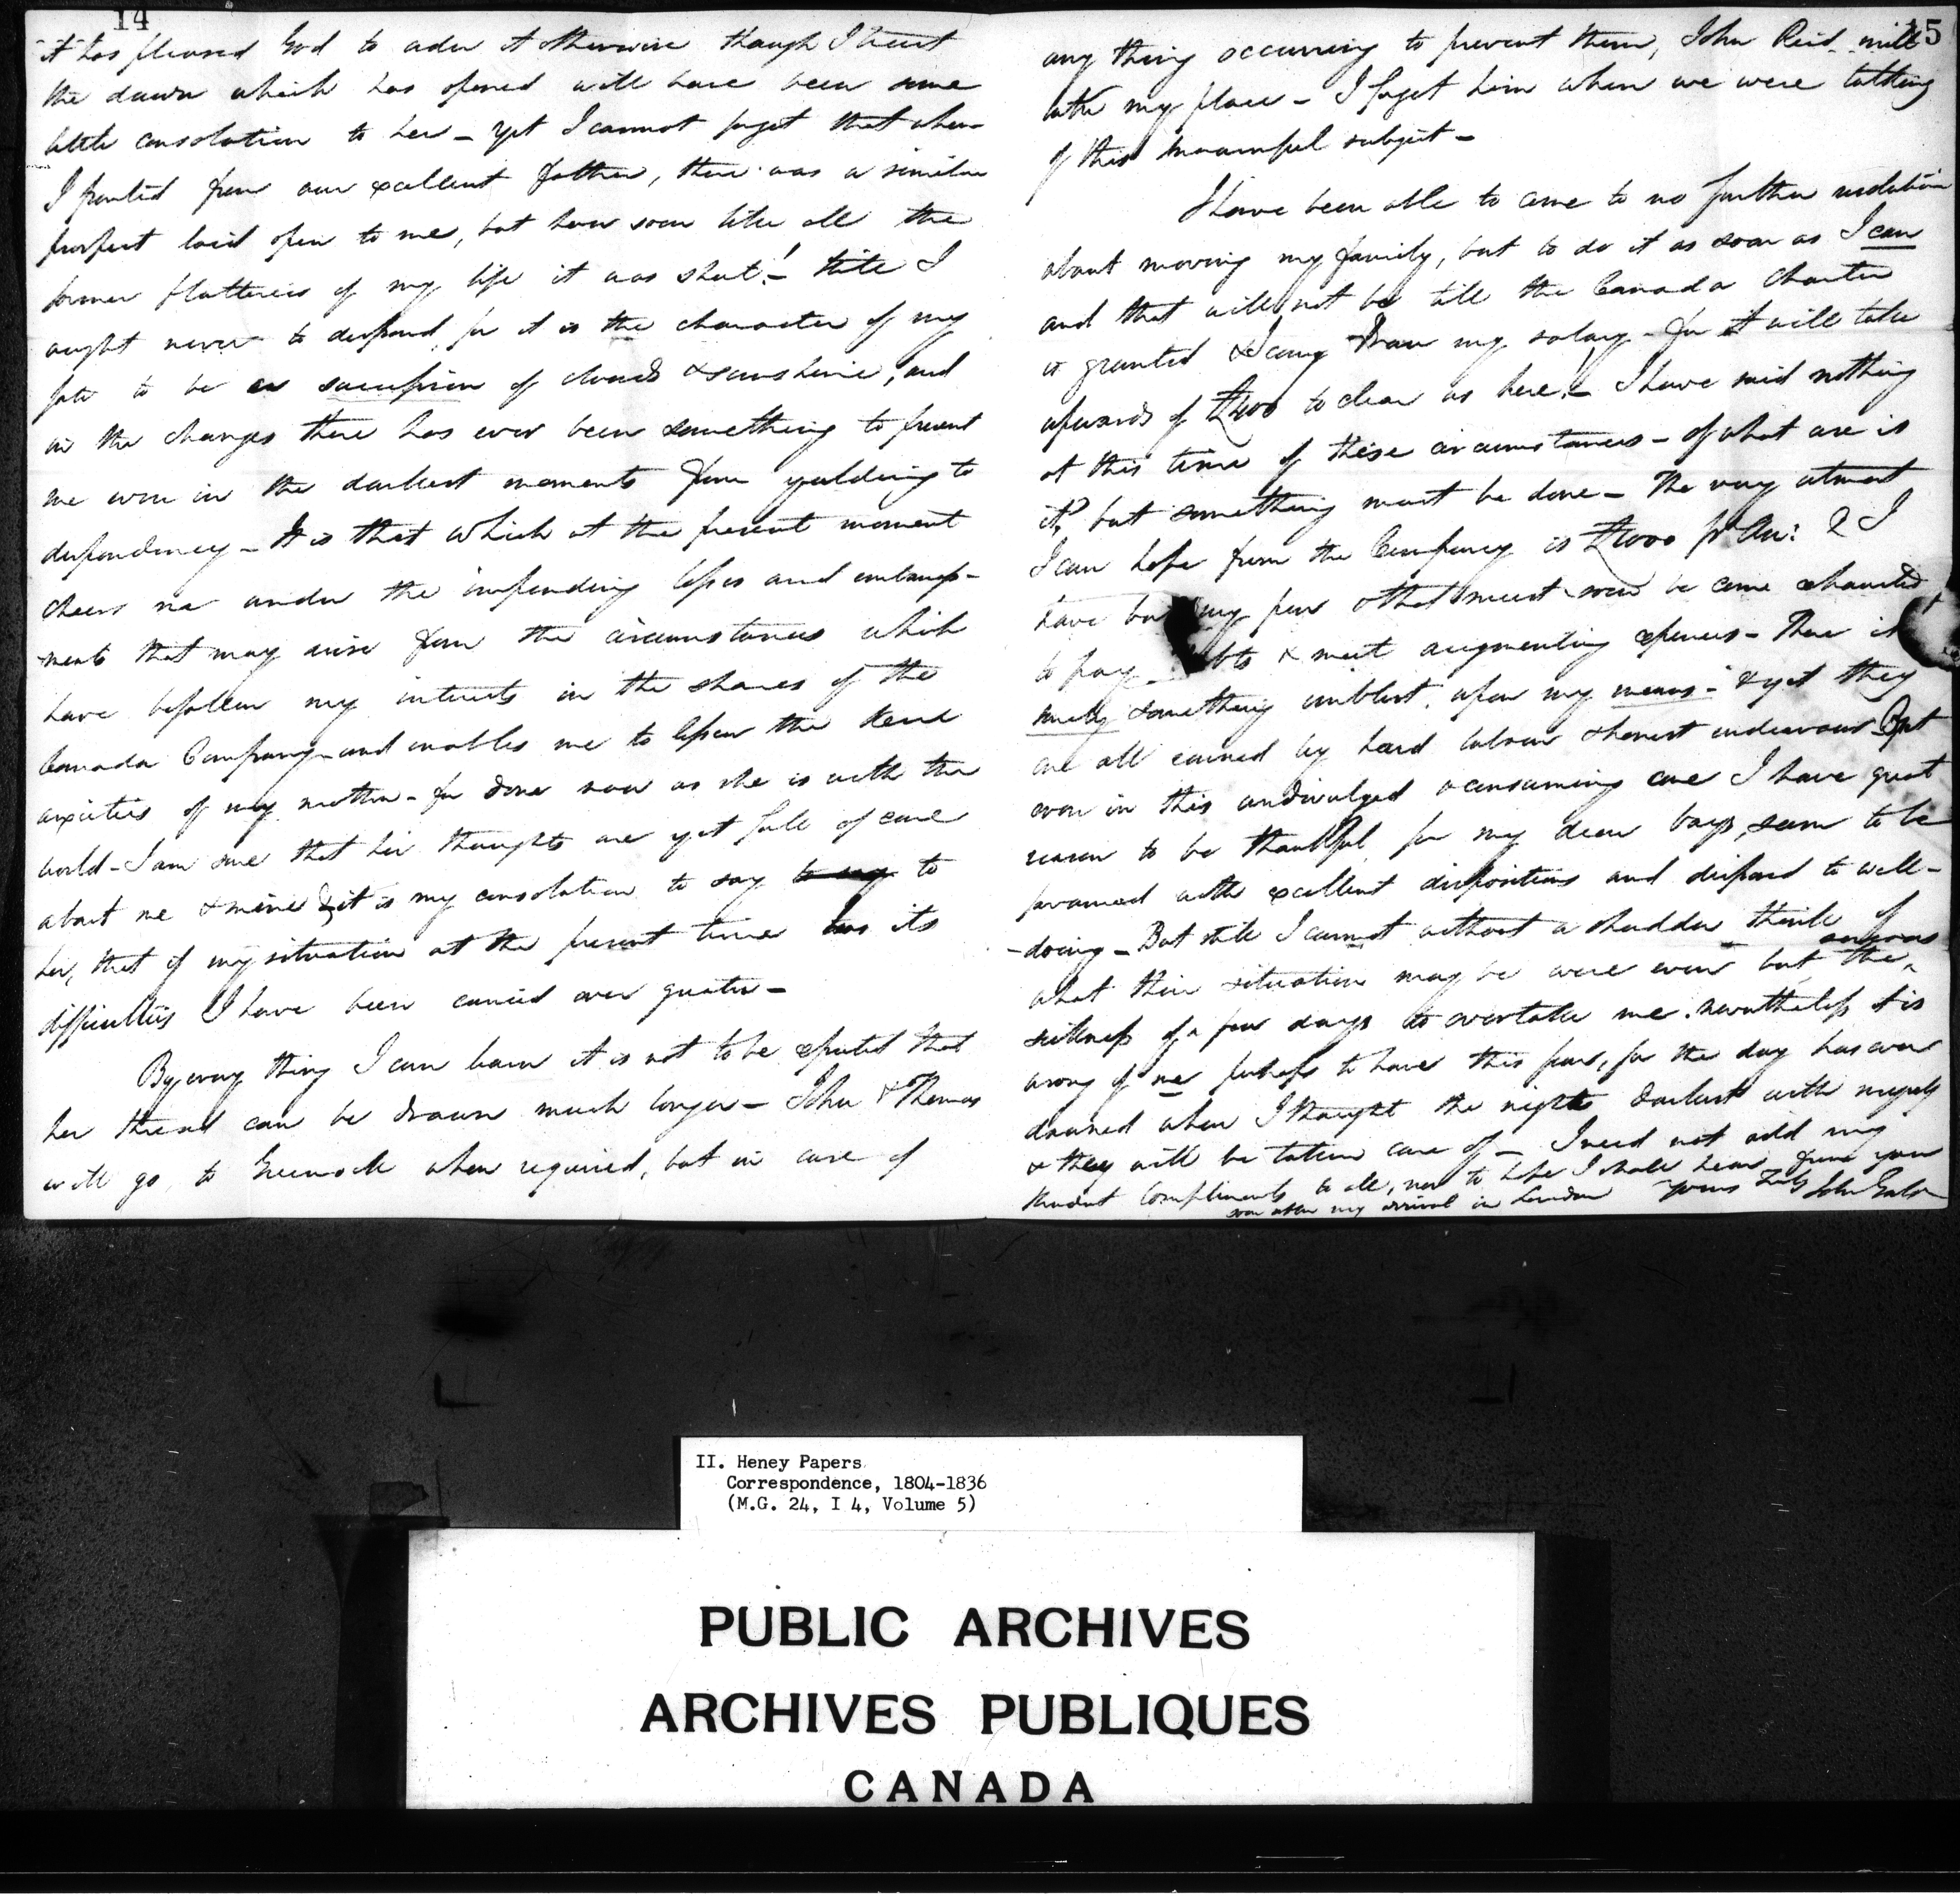 14
it has pleased God to order it otherwise though I trust
the dawn which has opened will have been some
little consolation to her – yet I cannot forget that when
I parted from our excellent father, there was a similar
prospect laid open to me, but how soon like all the
former flatteries of my life it was shut! – Still I
ought never to despond, for it is the character of my
fate to be a succession of clouds & sunshine, and
in the changes there has ever been something to prevent
me even in the darkest moments from yielding to
despondency – It is that which at the present moment
cheers me under the impending losses and embarrass-
ments that may arise from the circumstances which
have befallen my interests in the shares of the
Canada Company – and enables me to lessen the kind
anxieties of my mother – for done now as she is with the
world – I am sure that her thoughts are yet full of care
about me & mine & it is my consolation to say to say to
her, that if my situation at the present time has its
difficulties I have been carried over greater –
By every thing I can learn it is not to be expected that
her thread can be drawn much longer – John & Thomas
will go to Greenock when required, but in case of
15
any thing occurring to prevent them, John Reid will
take my place – I forgot him when we were talking
of this mournful subject –
I have been able to come to no further resolution
about moving my family, but to do it as soon as I can
and that will not be till the Canada Charter
is granted & I can draw my salary – for it will take
upwards of £400 to clear us here! – I have said nothing
at this time of these circumstances – of what use is
it? but something must be done – The very utmost
I can hope from the Company is £1000 pr An: & I
have but my pen & that must soon be come exhausted
to pay bts & meet augmenting expences – There is
surely something unblest upon my means – & yet they
are all earned by hard labour & honest endeavour But
even in this undivulged & consuming care I have great
reason to be thankful, for my dear boys seem to be
formed with excellent dispositions and disposed to well-
-doing – But still I cannot without a shudder think of
what their situation may be were even but the
sickness of a few days to overtake me. nevertheless it is
wrong of me perhaps to have this fear, for the day has ever
dawned when I thought the night darkest with myself
& they will be taken care of – I need not add my
kindest compliments to all, nor to hope I shall hear from you
soon after my arrival in London Yours Truly John Galt
II. Heney Papers
Correspondence, 1804-1836
(M.G. 24, I 4, Volume 5)
PUBLIC ARCHIVES
ARCHIVES PUBLIQUES
CANADA